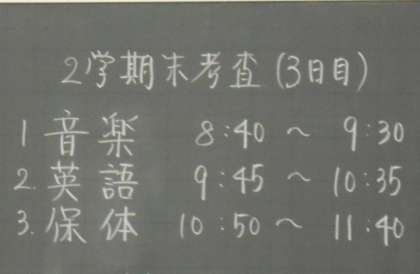 2学期末考査(3日目)
1 音楽 8:40 ～ 9:30
2. 英語 9:45 ～ 10:35
3. 保体 10:50 ～ 11:40